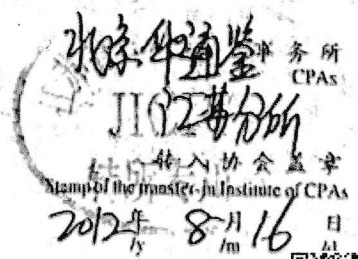 北京中通鉴事务所
CPAs
江苏分所
转入协会盖章
Stamp of the transfer-in Institute of CPAs
2012年 8月 16日
/y /m /d